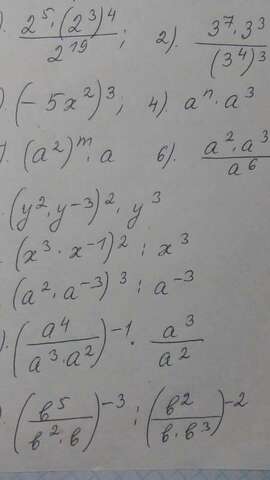 ). 2⁵·(2³)⁴ / 2¹⁹ ; 2). 3⁷·3³ / (3⁴)³
) (-5x²)³; 4). aⁿ·a³
). (a²)ᵐ : a 6). a²·a³ / a⁶
(y²·y⁻³)²·y³
(x³·x⁻¹)² : x³
(a²·a⁻³)³ : a⁻³
). (a⁴ / a³·a²)⁻¹ · a³ / a²
) (b⁵ / b²·b)⁻³ : (b² / b·b³)⁻²